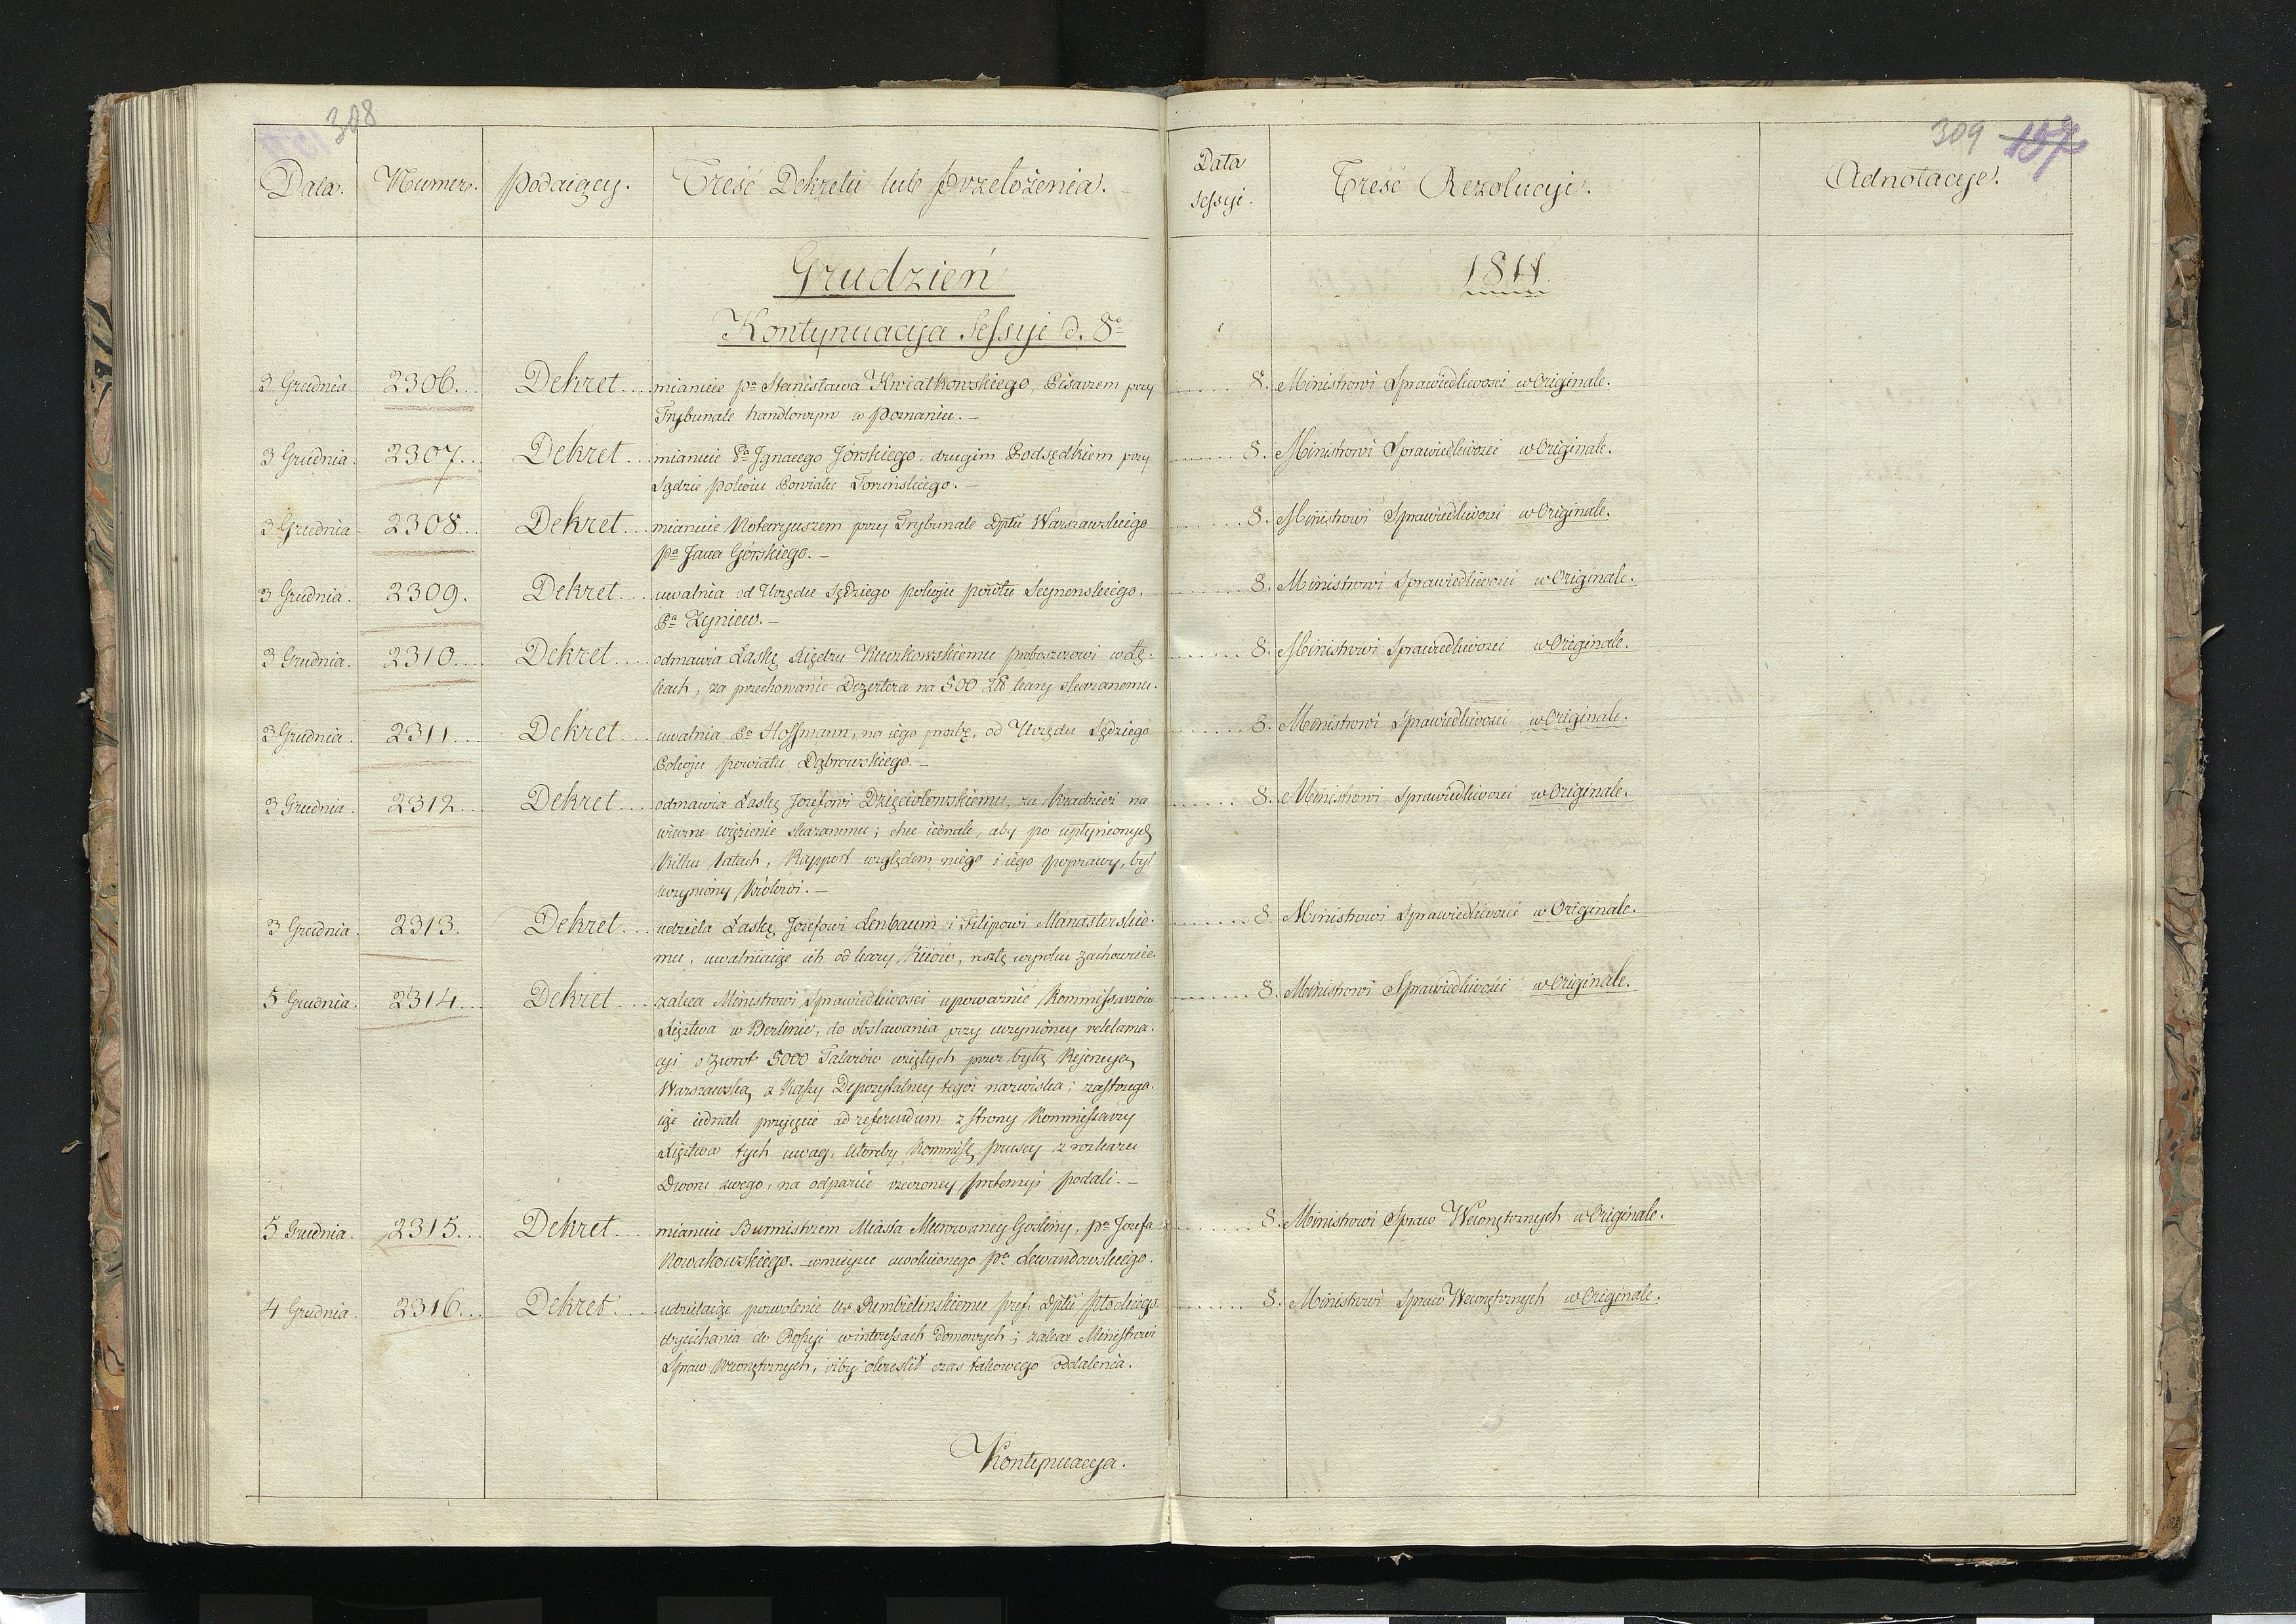 308
Data. Numer. Podaiący. Treść Dekretu lub Przełożenia.
Grudzień
Kontynuacyja Sessyi d. 8º
3 Grudnia 2306... Dekret.... mianuie Pª Stanisława Kwiatkowskiego, Pisarzem przy
Trybunale handlowym w Poznaniu.–
3 Grudnia. 2307... Dekret.... mianuie Pª Jgnacego Jórskiego, drugim Podsędkiem przy
Sądzie Pokoiu Powiatu Toruńskiego.–
3 Grudnia 2308... Dekret.... mianuie Notaryuszem przy Trybunale Dptu Warszawskiego
Pª Jana Górskiego.–
3 Grudnia. 2309. Dekret.... uwalnia od Urzędu Sędziego pokoju powtu Seynenskiego.
Pª Zyniew.–
3 Grudnia. 2310.... Dekret.... odmawia Łaskę Xiędzu Kuczkowskiemu proboszczowi w Łę-
kach, za przechowanie Dezertera na 500 Zł kary skazanemu.
3 Grudnia. 2311.... Dekret.... uwalnia Pª Hoffmann, na iego prozbę, od Urzędu Sędziego
Pokoju powiatu Dąbrowskiego.–
3 Grudnia. 2312... Dekret.... odmawia Łaskę Jozefowi Dzięciołowskiemu, za kradzież na
wieczne więzienie skazanemu; chce iednak, aby po upłynionych
kilku latach, Rapport względem niego i iego poprawy, był
uczyniony Królowi.–
3 Grudnia. 2313. Dekret.... udziela Łaskę Jozefowi Lenbaum i Filipowi Manasterskie-
mu, uwalniaiąc ich od kary Kiiów, resztę wyroku zachowuie.
5 Grudnia. 2314... Dekret.... zaleca Ministrowi Sprawiedliwości upoważnić Kommissarzów
Xięztwa w Berlinie, do obstawania przy uczynioney reklama-
cyi o Zwrot 5000 Talarów wziętych przez byłą Rejencyą
Warszawską z Kassy Depozytalney tegoż nazwiska; zastrzega-
iąc iednak przyięcie ad referendum z strony Kommissarzy
Xięztwa tych uwag, któreby Kommiss pruscy z rozkazu
Dworu swego, na odparcie rzeczoney pretensyi podali.–
5 Grudnia. 2315... Dekret.... mianuie Burmistrzem Miasta Murowaney Gosliny, Pª Jozefa
Nowakowskiego. wmieysce uwolnionego Pª Lewandowskiego.
4 Grudnia. 2316... Dekret.... udzielaiąc pozwolenie Ur Rembielinskiemu pref. Dptu Płockiego
wyiechania do Rossyi w interessach domowych; zaleca Ministrowi
Spraw Wewnętrznych, iżby określił czas takowego oddalenia.
Kontynuacya.
309 157
Data Sessyi. Treść Rezolucyi. Adnotacyje.
1811.
8. Ministrowi Sprawiedliwości w Originale.
8. Ministrowi Sprawiedliwości w Originale.
8. Ministrowi Sprawiedliwości w Originale.
8. Ministrowi Sprawiedliwości w Originale.
8. Ministrowi Sprawiedliwości w Originale.
8. Ministrowi Sprawiedliwości w Originale.
8. Ministrowi Sprawiedliwości w Originale.
8. Ministrowi Sprawiedliwości w Originale.
8. Ministrowi Sprawiedliwości w Originale.
8. Ministrowi Spraw Wewnętrznych w Originale.
8. Ministrowi Spraw Wewnętrznych w Originale.